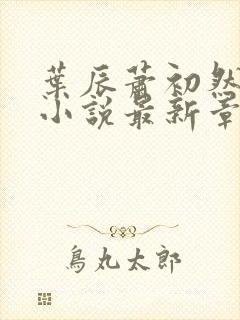 葉辰蕭初然
小說最新章
鳥丸太郎